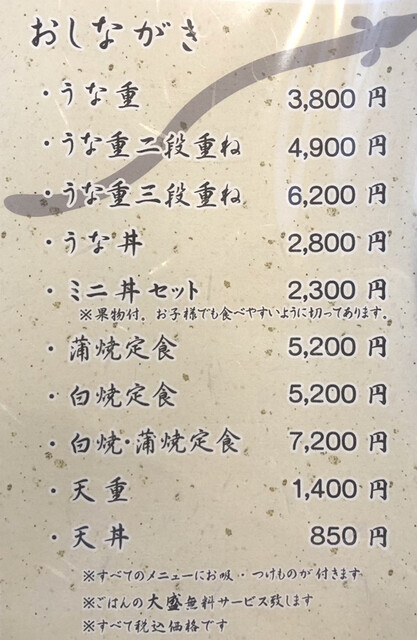 おしながき
・うな重 3,800 円
・うな重二段重ね 4,900 円
・うな重三段重ね 6,200 円
・うな丼 2,800 円
・ミニ丼セット 2,300 円
※果物付。お子様でも食べやすいように切ってあります。
・蒲焼定食 5,200 円
・白焼定食 5,200 円
・白焼・蒲焼定食 7,200 円
・天重 1,400 円
・天丼 850 円
※すべてのメニューにお吸・つけものが付きます
※ごはんの大盛無料サービス致します
※すべて税込価格です